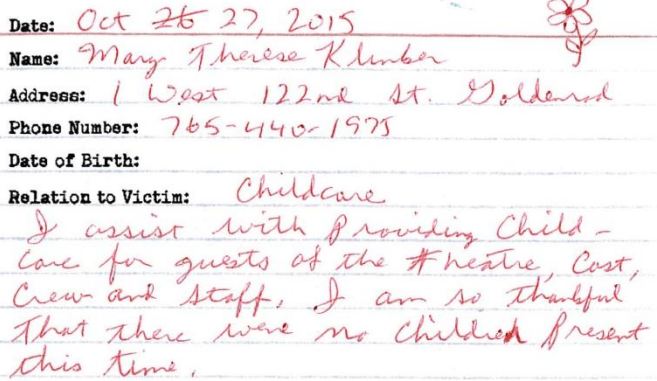 Date: Oct 26 27, 2015
Name: Mary Therese Klimber
Address: 1 West 122nd St. Goldenrod
Phone Number: 765-440-1975
Date of Birth:
Relation to Victim: Childcare
I assist with Providing Child-
care for guests of the theatre, Cast,
Crew and Staff. I am so thankful
That there were no children Present
this time.